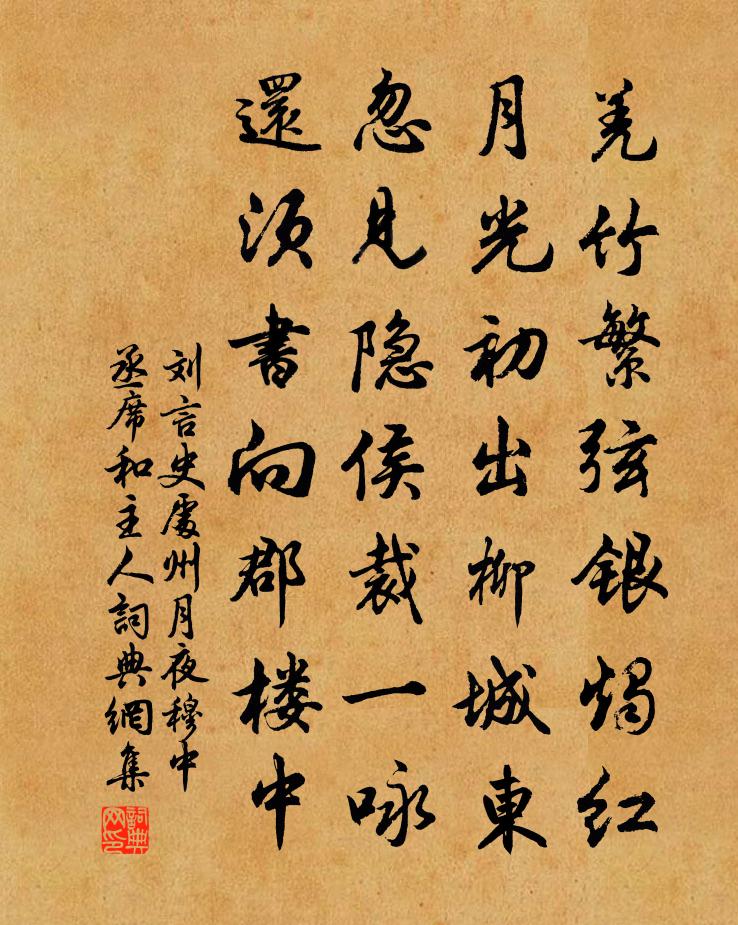 羌竹繁弦銀燭红
月光初出柳城東
忽見隐侯裁一咏
還须書向郡楼中
刘言史處州月夜穆中
丞席和主人詞典網集
詞典网印